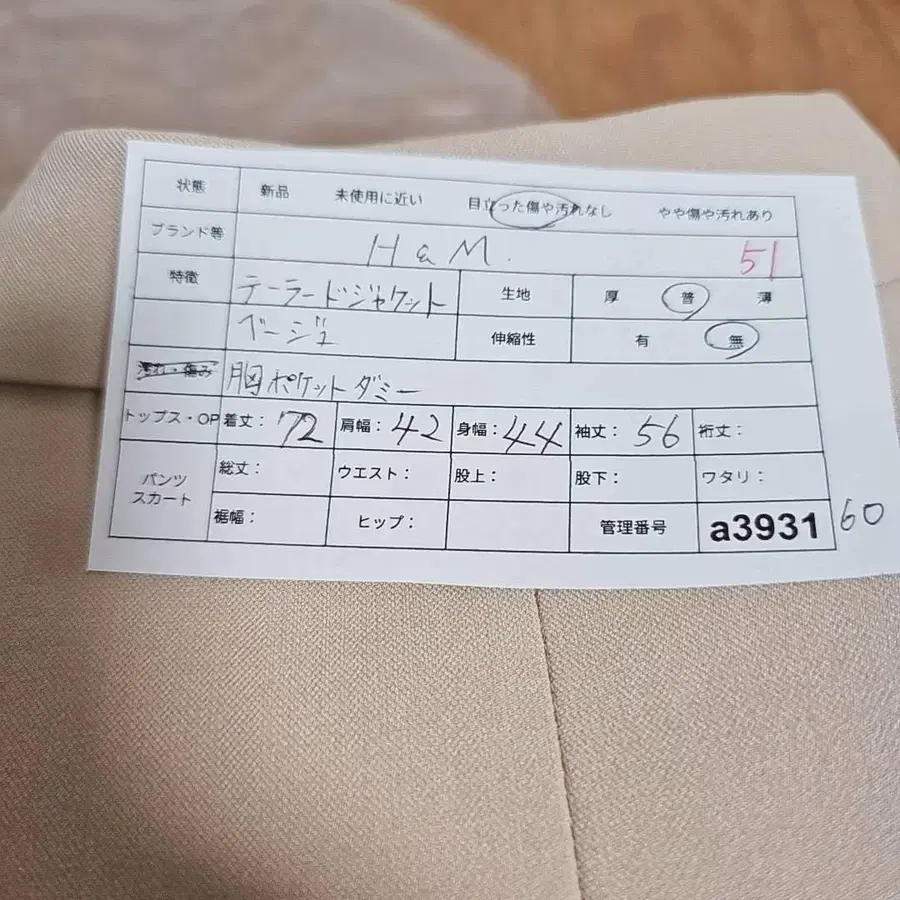 状態 新品 未使用に近い 目立った傷や汚れなし やや傷や汚れあり
ブランド等 H&M. 51
特徴 テーラードジャケット 生地 厚 普 薄
ベージュ 伸縮性 有 無
汚れ・傷み 胸ポケットダミー
トップス・OP 着丈: 72 肩幅: 42 身幅: 44 袖丈: 56 裄丈:
パンツ スカート 総丈: ウエスト: 股上: 股下: ワタリ:
裾幅: ヒップ: 管理番号 a3931 60